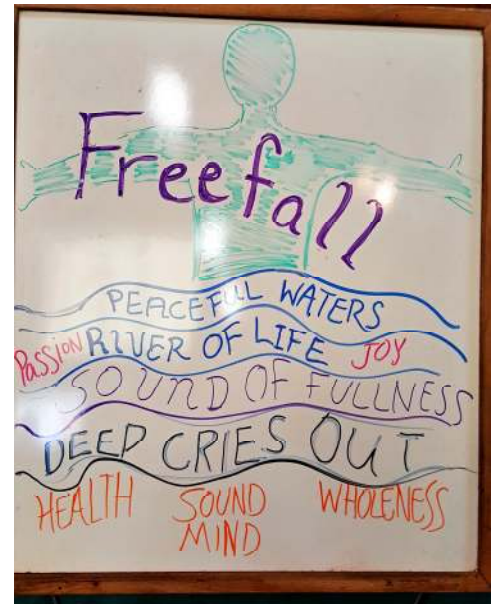 Freefall
PEACEFUL WATERS
PASSION RIVER OF LIFE JOY
SOUND OF FULLNESS
DEEP CRIES OUT
HEALTH SOUND MIND WHOLENESS